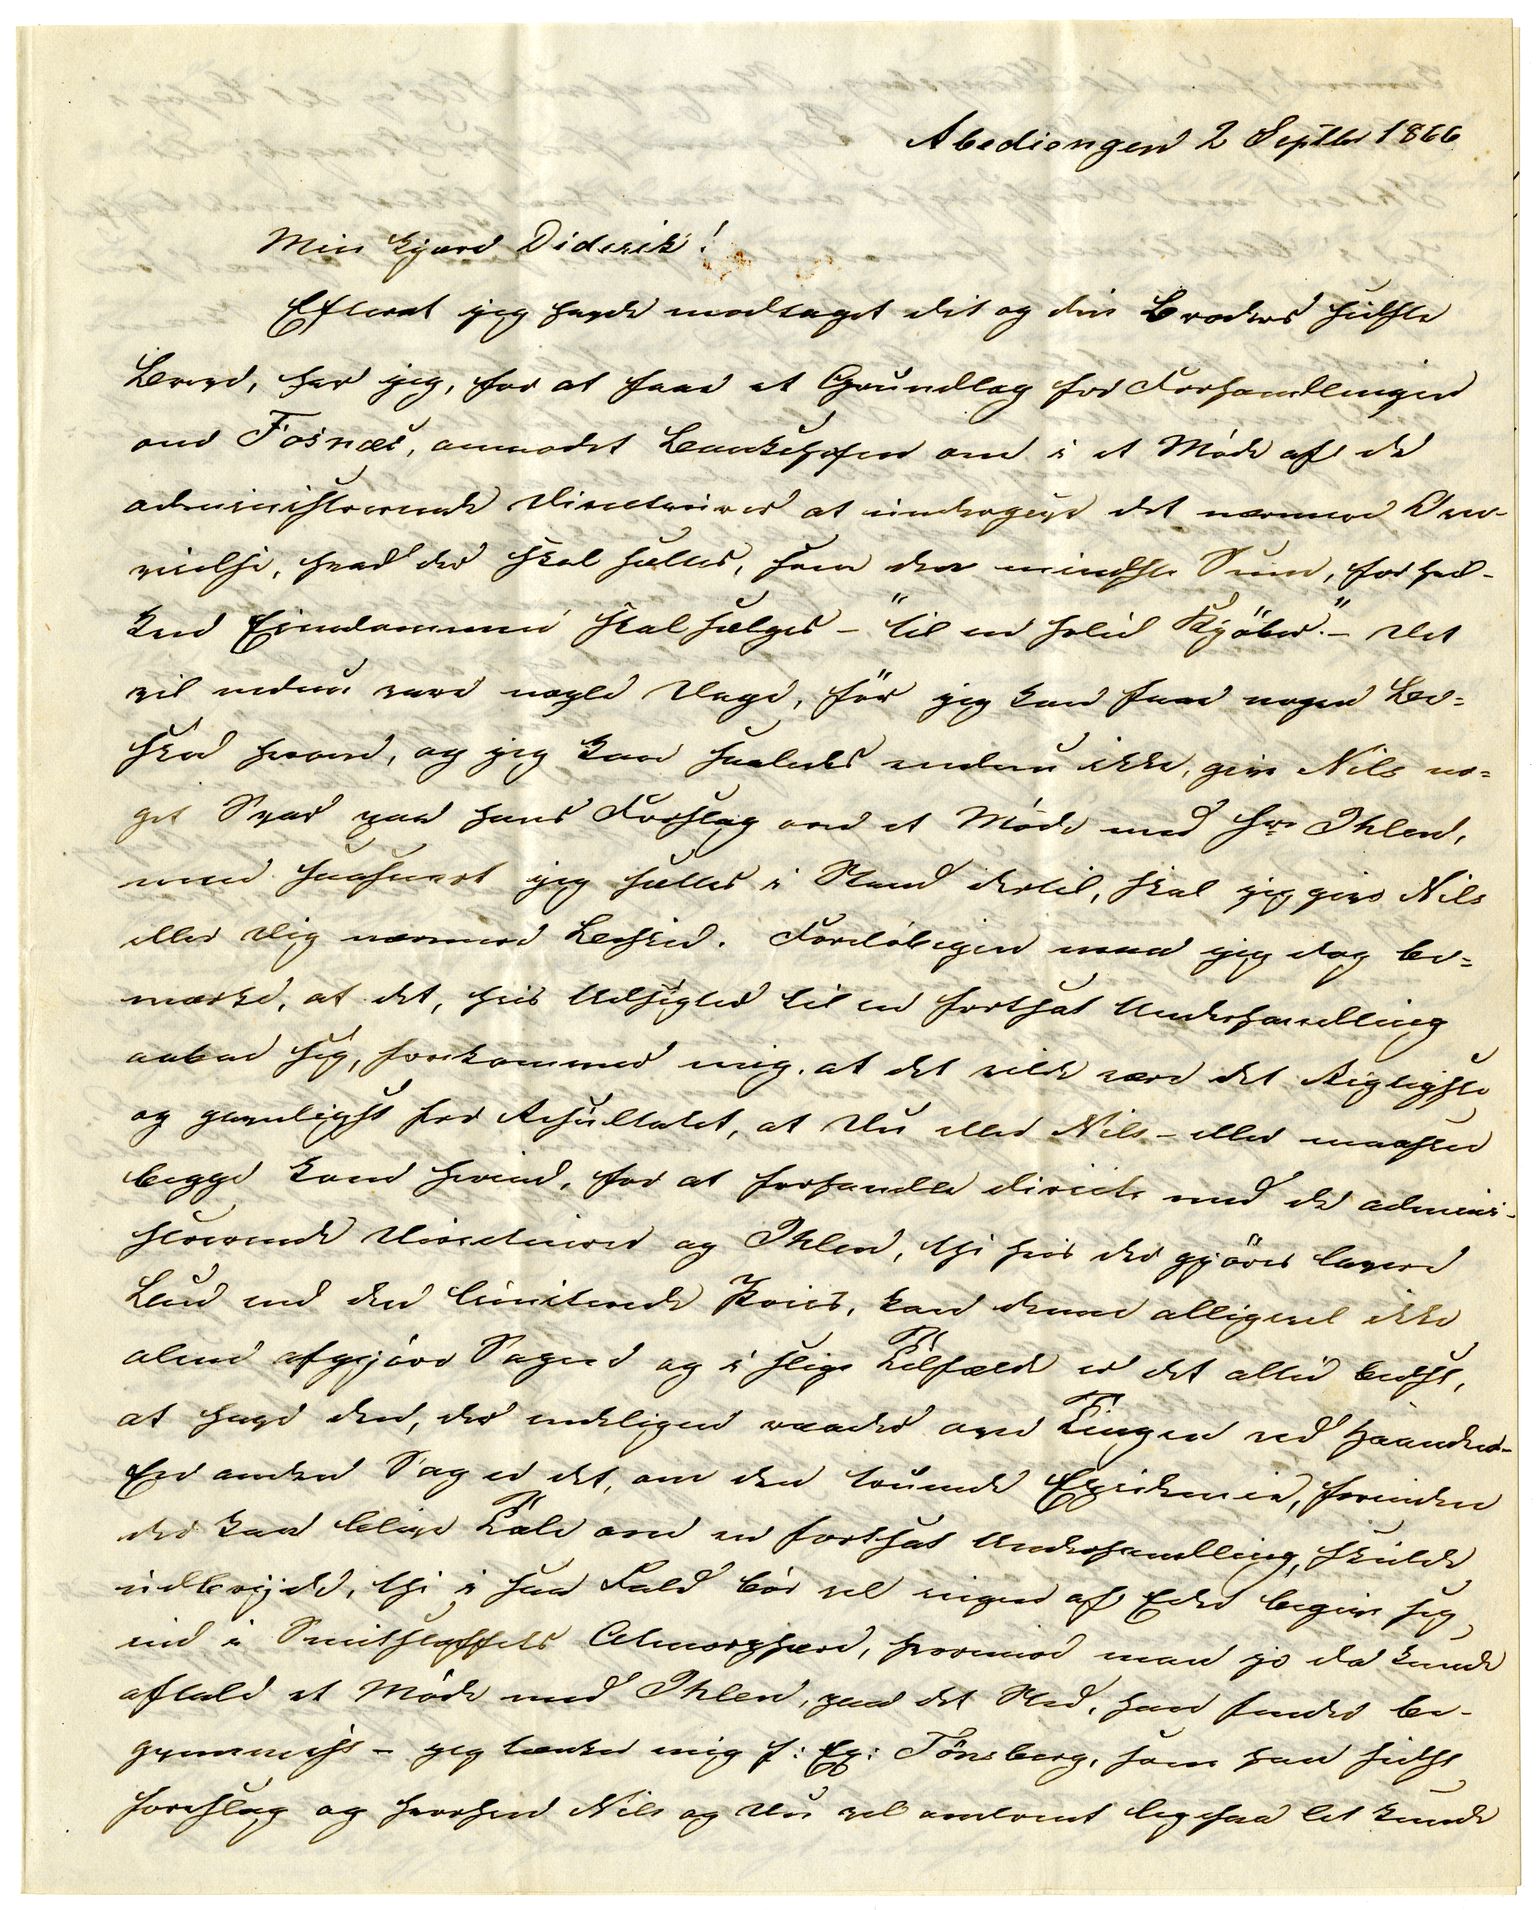 Abediengen 2 Septbr 1866
Min kjære Diderik!
Efterat jeg havde modtaget dit og din Broders sidste
Breve, har jeg, for at faae et Grundlag for Forhandlingen
om Fosnæs, anmodet Bankchefen om i et Møde af de
administrerende Directeurer at undergive det nærmere Over-
veielse, hvad der skal sættes, som den mindste Sum, for hvil-
ken Eiendommen skal sælges – "til en solid Kjöber". – Det
vil endnu vare nogle Dage, för jeg kan faae nogen Be-
sked herom, og jeg kan saaledes endnu ikke, give Nils no-
get Svar paa hans Forslag om et Møde med Hr Ihlen,
men saasnart jeg sættes i Stand dertil, skal jeg give Nils
eller Dig nærmere Besked. Foreløbigen maa jeg dog be-
mærke, at det, hvis Udsigter til en fortsat Underhandling
aabne sig, forekommer mig, at det vilde være det Rigtigste
og gavnligst for Resultatet, at Du eller Nils – eller maaskee
begge kom herind, for at forhandle directe med de admini-
strerende Directeurer og Ihlen, thi hvis der gjöres lavere
Bud end den limiterede Priis, kan denne alligevel ikke
alene afgjöre Sagen og i slige Tilfælde er det altid bedst,
at have den, der endeligen raader over Tingen ved Haanden.
En anden Sag er det, om den truende Epidemie, forinden
der kan blive Tale om en fortsat Underhandling, skulde
udbryde, thi i saa Fald bør vel ingen af Eder begive sig
ind i Smitstoffets Atmosphære, hvorimod man jo da kunde
aftale et Møde med Ihlen, paa det Sted, han finder be-
qvemmest – jeg tænker mig f: Ex: Tönsberg, som han sidst
foreslog og hvorhen Nils og Du vel omtrent ligesaa let kunde